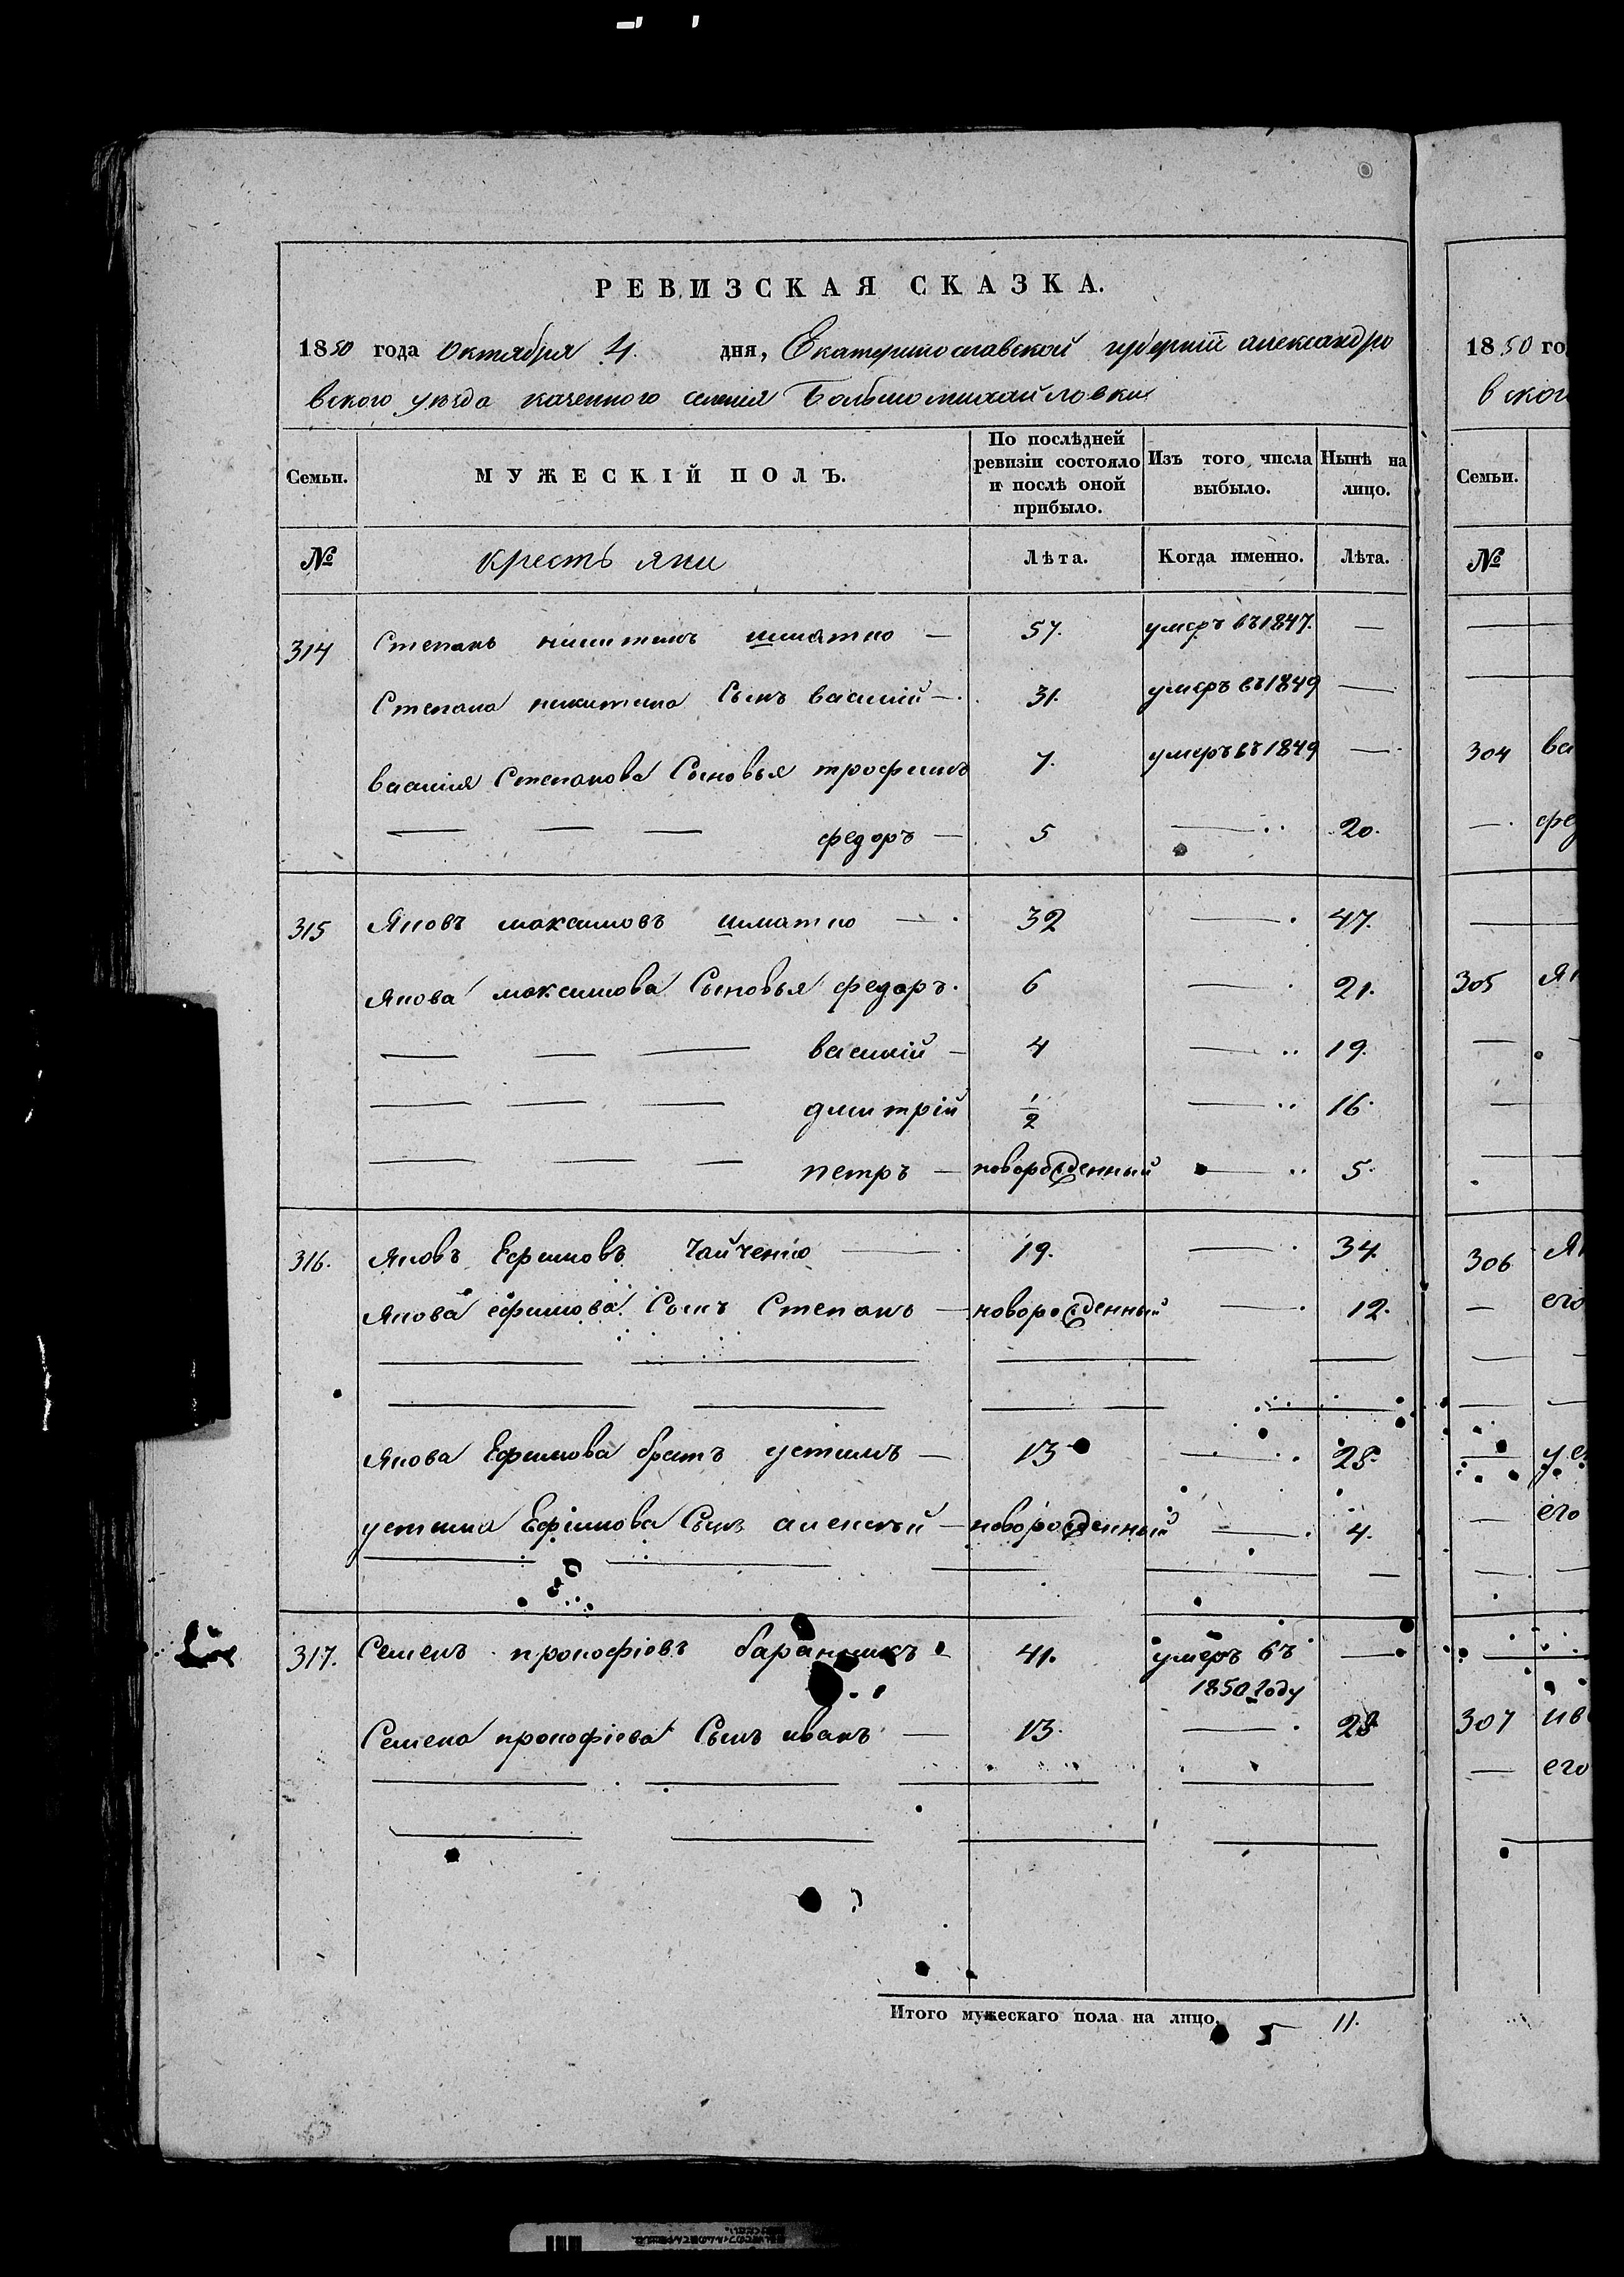 РЕВИЗСКАЯ СКАЗКА.
1850 года Октября 4. дня, Екатеринославской губерніи александро
вского уезда казенного селенія Большомихайловки
Семьи. МУЖЕСКІЙ ПОЛЪ. По послѣдней ревизіи состояло и послѣ оной прибыло. Изъ того числа выбыло. Нынѣ на лицо.
№ крестьяни Лѣта. Когда именно. Лѣта.
314 Степанъ никитинъ шматко — 57. умеръ въ 1847. —
Степана никитина Сынъ василій — 31. умеръ въ 1849 —
василія Степанова Сыновья трофимъ 7. умеръ въ 1849 —
— — — федоръ — 5 — 20.
315 Яковъ максимовъ шматко — 32 — 47.
Якова максимова Сыновья федоръ. 6 — 21.
— — — василій — 4 — 19.
— — — дмитрій 1/2 — 16.
— — — петръ — новорожденный — 5.
316. Яковъ Ефимовъ Чайченко — 19. — 34.
Якова ефимова Сынъ Степанъ — новорожденный — 12.
Якова Ефимова братъ устимъ — 13 — 28.
устима Ефимова Сынъ алексѣй — новорожденный — 4.
317. Семенъ прокофіевъ баранникъ — 41. умеръ въ —
1850 году
Семена прокофіева Сынъ иванъ — 13. — 28
Итого мужескаго пола на лицо. 5 11.
1850 го
вског
Семьи.
№
304 ва
фед
305 Як
306 Як
его
ус
его
307 ив
его